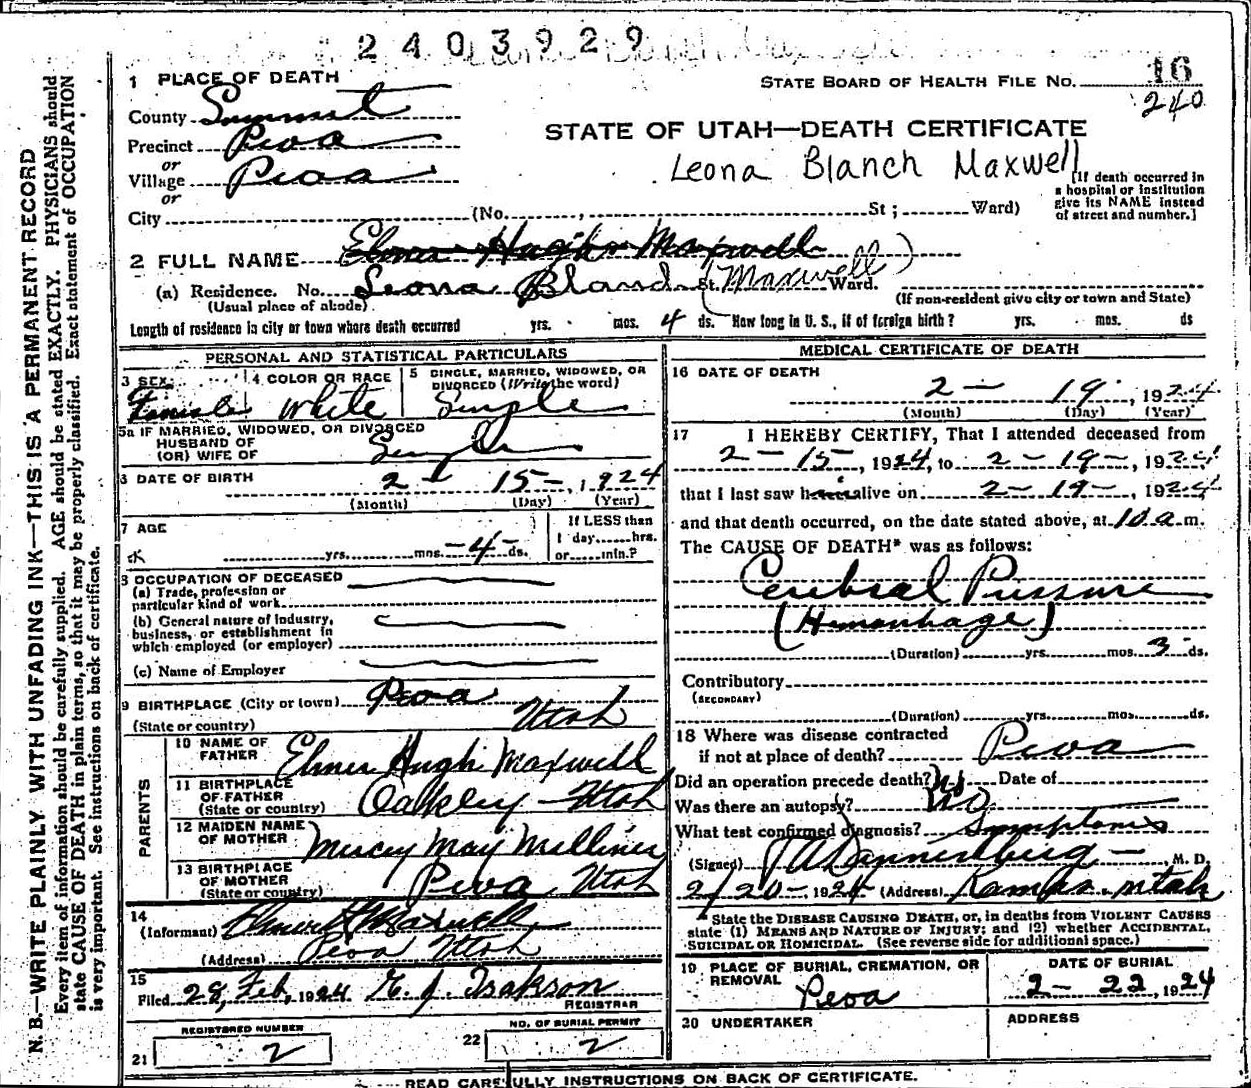 2403929
1 PLACE OF DEATH
STATE BOARD OF HEALTH FILE No. 16
240
County Summit
Precinct Peoa
or
Village Peoa
or
STATE OF UTAH—DEATH CERTIFICATE
Leona Blanch Maxwell
[If death occurred in
a hospital or institution
give its NAME instead
of street and number.]
City (No. , St ; Ward)
2 FULL NAME Elmer Hugh Maxwell
(a) Residence. No. Leona Blanch St. (Maxwell) Ward.
(Usual place of abode)
(If non-resident give city or town and State)
Length of residence in city or town where death occurred yrs. mos. 4 ds. How long in U. S., if of foreign birth? yrs. mos. ds
PERSONAL AND STATISTICAL PARTICULARS
3 SEX
Female
4 COLOR OR RACE
White
5 SINGLE, MARRIED, WIDOWED, OR
DIVORCED (Write the word)
Single
5a IF MARRIED, WIDOWED, OR DIVORCED
HUSBAND OF
(OR) WIFE OF Single
6 DATE OF BIRTH
2 - 15 -, 1924
(Month) (Day) (Year)
7 AGE
yrs. mos -4- ds.
If LESS than
1 day......hrs.
or......min.?
8 OCCUPATION OF DECEASED
(a) Trade, profession or
particular kind of work
(b) General nature of industry,
business, or establishment in
which employed (or employer)
(c) Name of Employer
9 BIRTHPLACE (City or town) Peoa
(State or country) Utah
PARENTS
10 NAME OF
FATHER Elmer Hugh Maxwell
11 BIRTHPLACE
OF FATHER
(State or country) Oakley - Utah
12 MAIDEN NAME
OF MOTHER Mercey May Milliner
13 BIRTHPLACE
OF MOTHER
(State or country) Peoa Utah
14
(Informant) Elmer H Maxwell
(Address) Peoa Utah
15
Filed 28, Feb, 1924 E. J. Isakson
REGISTRAR
REGISTERED NUMBER
21 2
NO. OF BURIAL PERMIT
22 2
MEDICAL CERTIFICATE OF DEATH
16 DATE OF DEATH
2 - 19, 1924
(Month) (Day) (Year)
17 I HEREBY CERTIFY, That I attended deceased from
2 - 15 -, 1924, to 2 - 19 -, 1924
that I last saw h alive on 2 - 19 -, 1924
and that death occurred, on the date stated above, at 10 a m.
The CAUSE OF DEATH* was as follows:
Cerebral Pressure
(Hemorrhage)
(Duration) yrs. mos. 3 ds.
Contributory
(SECONDARY)
(Duration) yrs. mos. ds.
18 Where was disease contracted
if not at place of death? Peoa
Did an operation precede death? No Date of
Was there an autopsy? No
What test confirmed diagnosis? Symptoms
(Signed) Dannenberg -, M. D.
2/20 - 1924 (Address) Kamas, Utah
*State the DISEASE CAUSING DEATH, or, in deaths from VIOLENT CAUSES
state (1) MEANS AND NATURE OF INJURY; and (2) whether ACCIDENTAL,
SUICIDAL OR HOMICIDAL. (See reverse side for additional space.)
19 PLACE OF BURIAL, CREMATION, OR
REMOVAL
Peoa
DATE OF BURIAL
2 - 22, 1924
20 UNDERTAKER
ADDRESS
READ CAREFULLY INSTRUCTIONS ON BACK OF CERTIFICATE.
N. B.—WRITE PLAINLY WITH UNFADING INK—THIS IS A PERMANENT RECORD
Every item of information should be carefully supplied. AGE should be stated EXACTLY. PHYSICIANS should
state CAUSE OF DEATH in plain terms, so that it may be properly classified. Exact statement of OCCUPATION
is very important. See instructions on back of certificate.